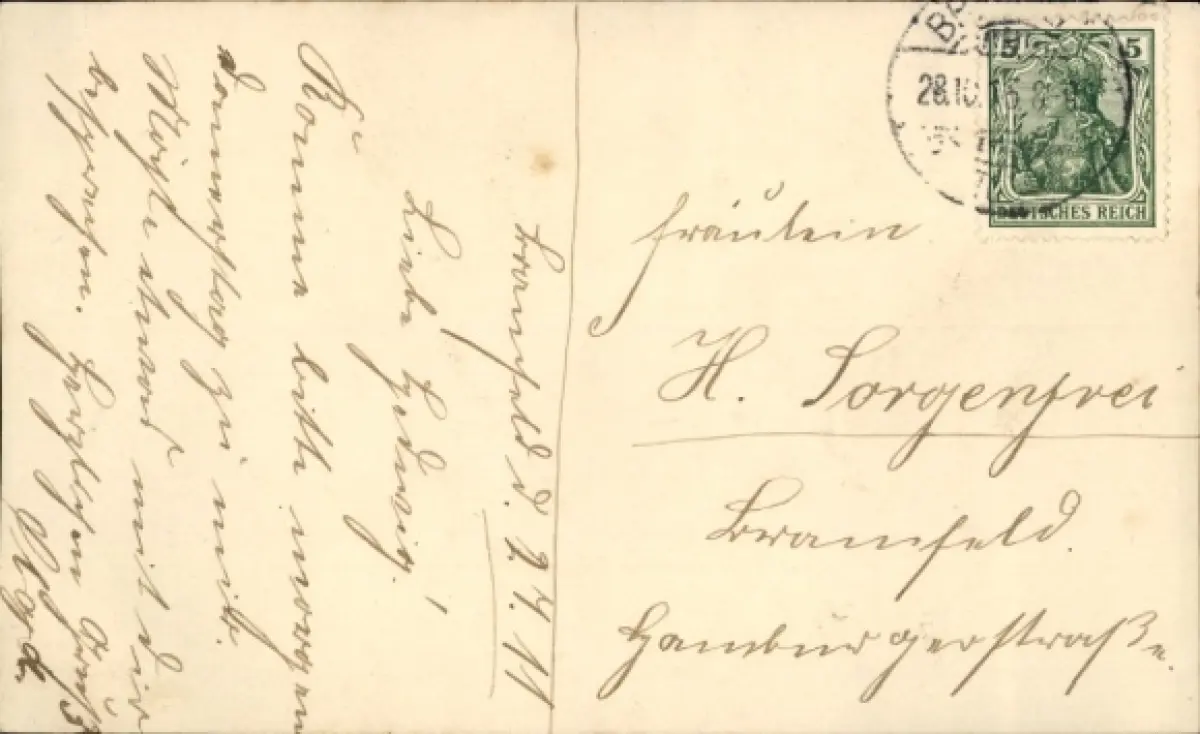 Bramfeld d. 27. 11
Liebe Hedwig!
Komme bitte morgen
Donnerstag zu mir.
Möchte etwas mit dir
besprechen. Herzlichen Gruß
Fräulein
H. Sorgenfrei
Bramfeld.
Hamburgerstraße.
5 5
28.10.
DEUTSCHES REICH